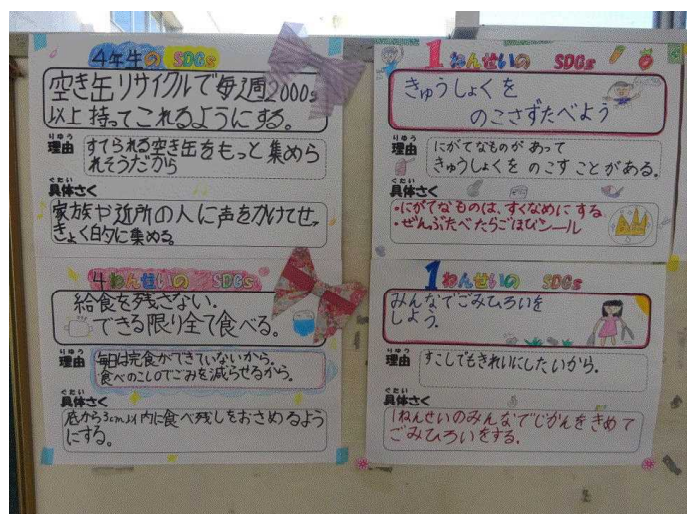 4年生の SDGs
空き缶リサイクルで毎週2000g
以上持ってこれるようにする。
りゆう
理由
すてられる空き缶をもっと集めら
れそうだから
ぐたい
具体さく
家族や近所の人に声をかけてせっ
きょく的に集める。
4ねんせいの SDGs
給食を残さない。
できる限り全て食べる。
りゆう
理由
毎日完食ができていないから。
食べのこしのごみを減らせるから。
ぐたい
具体さく
底から3cm以内に食べ残しをおさめるよう
にする。
1ねんせいの SDGs
きゅうしょくを
のこさずたべよう
りゆう
理由
にがてなものがあって
きゅうしょくを のこすことがある。
ぐたい
具体さく
・にがてなものは、すくなめにする
・ぜんぶたべたらごほびシール
1ねんせいの SDGs
みんなでごみひろいを
しよう。
りゆう
理由
すこしでもきれいにしたいから。
ぐたい
具体さく
1ねんせいのみんなでじかんをきめて
ごみひろいをする。